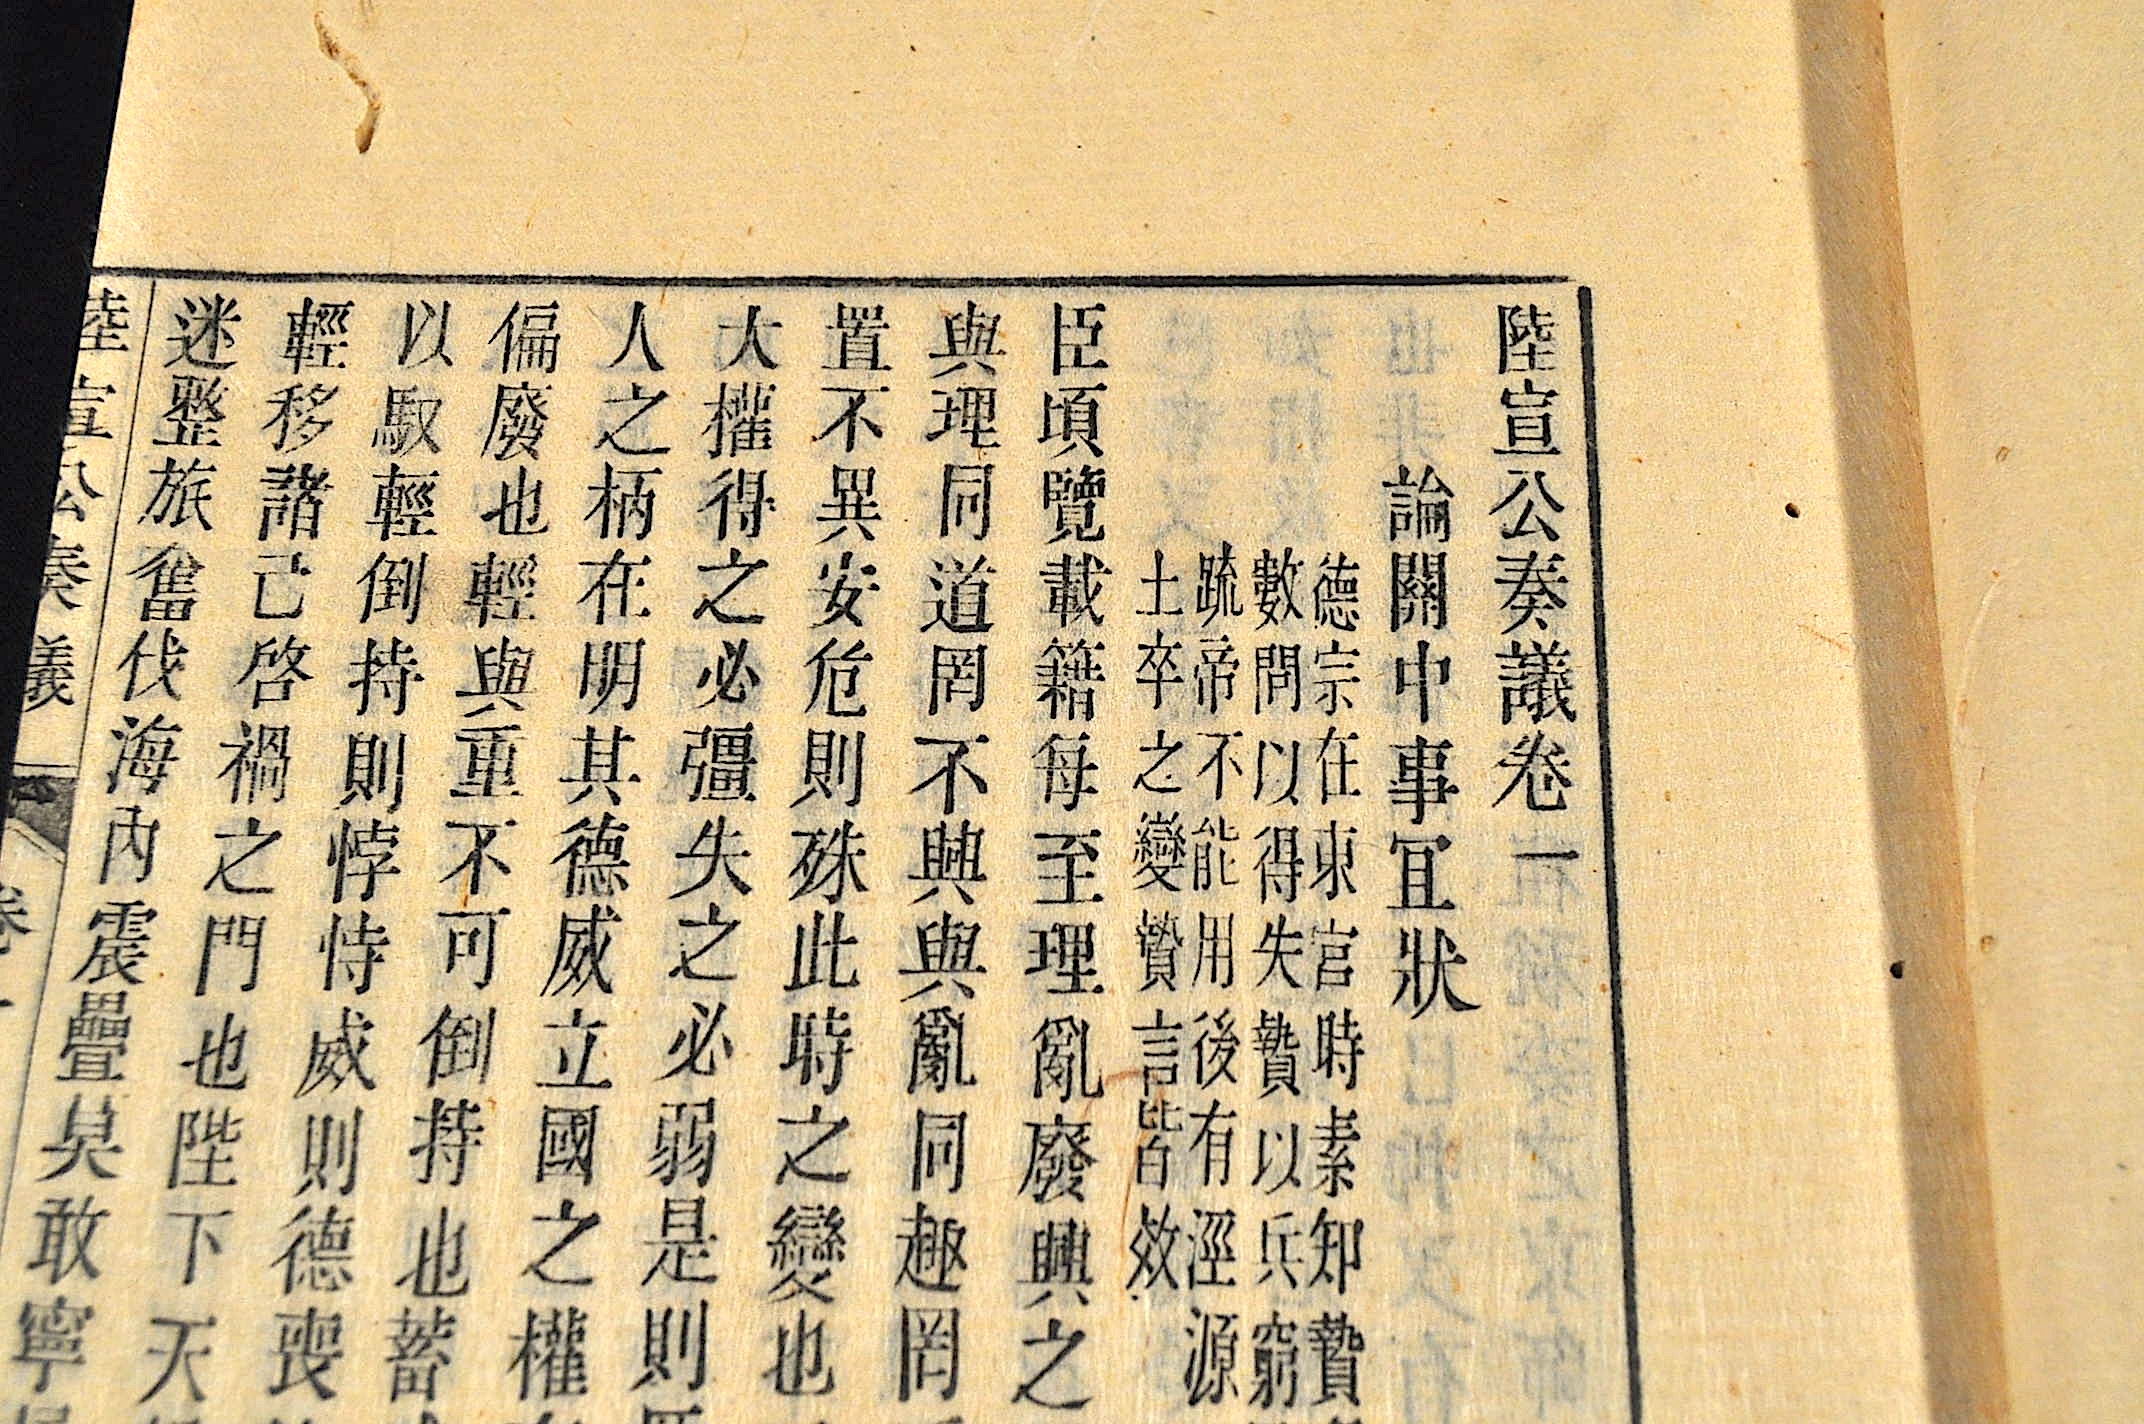 陸宣公奏議卷一
論關中事冝狀
德宗在東宮時素知贄
數問以得失贄以兵窮
䟽帝不能用後有涇源
士卒之變贄言皆效
臣頃覽載籍每至理亂廢興之
與理同道罔不興與亂同趣罔
置不異安危則殊此時之變也
大權得之必彊失之必弱是則
人之柄在明其德威立國之權
偏廢也輕與重不可倒持也蓄
以馭輕倒持則悖恃威則德喪
輕移諸己啓禍之門也陛下天
迷整旅奮伐海內震疊莫敢寧
陸宣公奏議
卷一